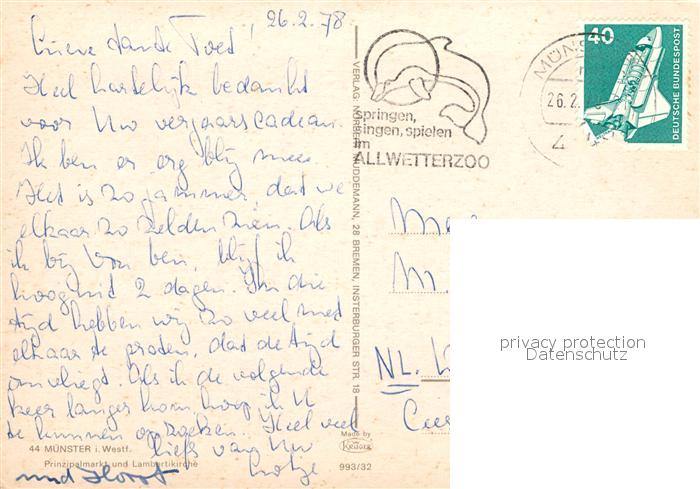 26.2.78
Lieve tante Toet!
Heel hartelijk bedankt
voor Uw verjaarscadeau.
Ik ben er erg blij mee.
Het is zo jammer, dat we
elkaar zo zelden zien. Als
ik bij Von ben, blijf ik
hooguit 2 dagen. In die
tijd hebben wij zo veel met
elkaar te praten, dat de tijd
omvliegt. Als ik de volgende
keer langer kom, hoop ik U
te kunnen opzoeken. Heel veel
liefs van Uw
und Horst
44 MÜNSTER i. Westf.
Prinzipalmarkt und Lambertikirche
VERLAG: NORBERT MUDDEMANN, 28 BREMEN, INSTERBURGER STR. 18
Made by
Krüger
993/32
springen,
singen, spielen
im
ALLWETTERZOO
MÜNS
26.2.
4
40
DEUTSCHE BUNDESPOST
M.
NL.
privacy protection
Datenschutz